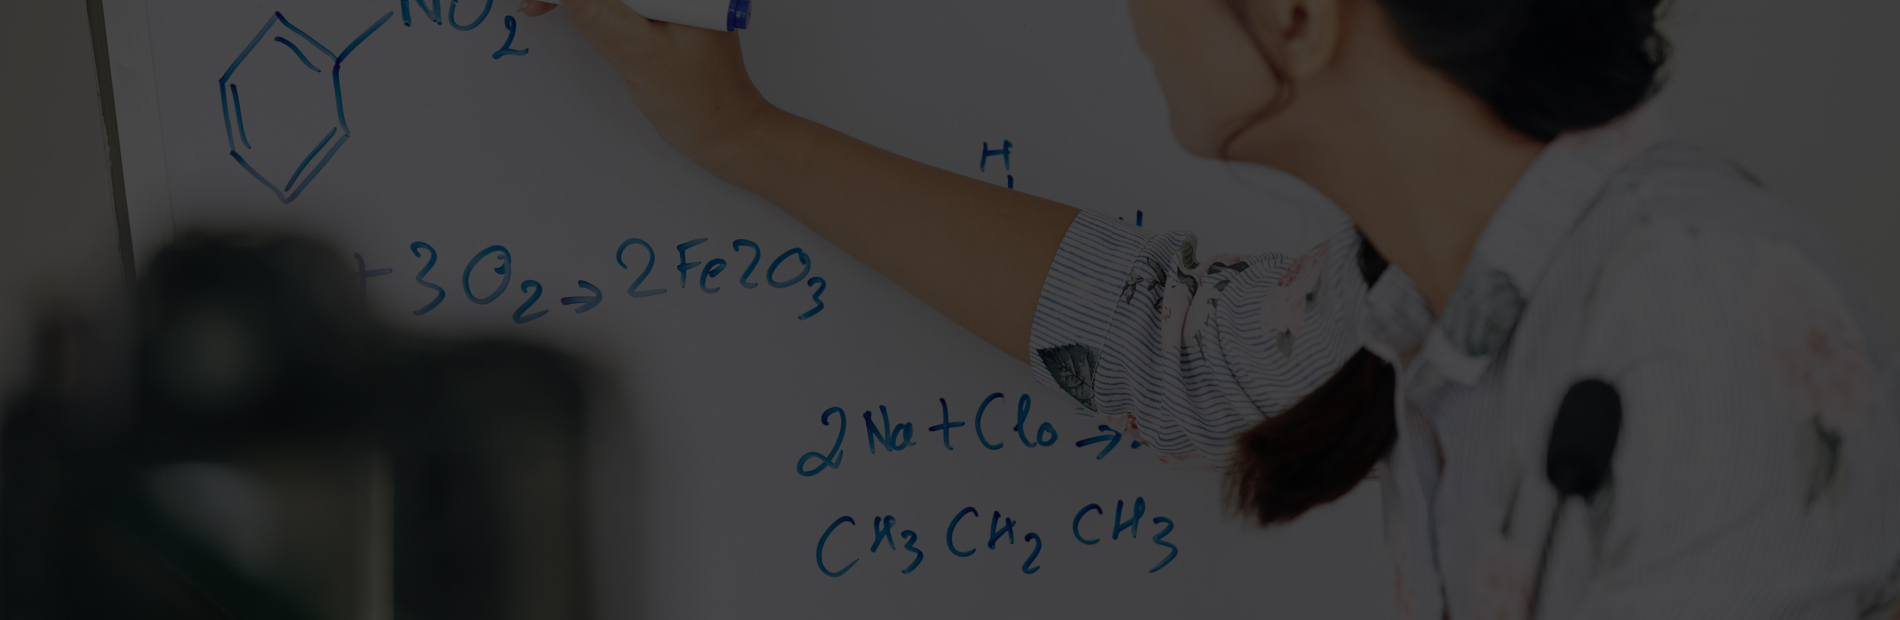 NO2
H
+ 3O2 → 2Fe2O3
2Na + Clo →
CH3 CH2 CH3